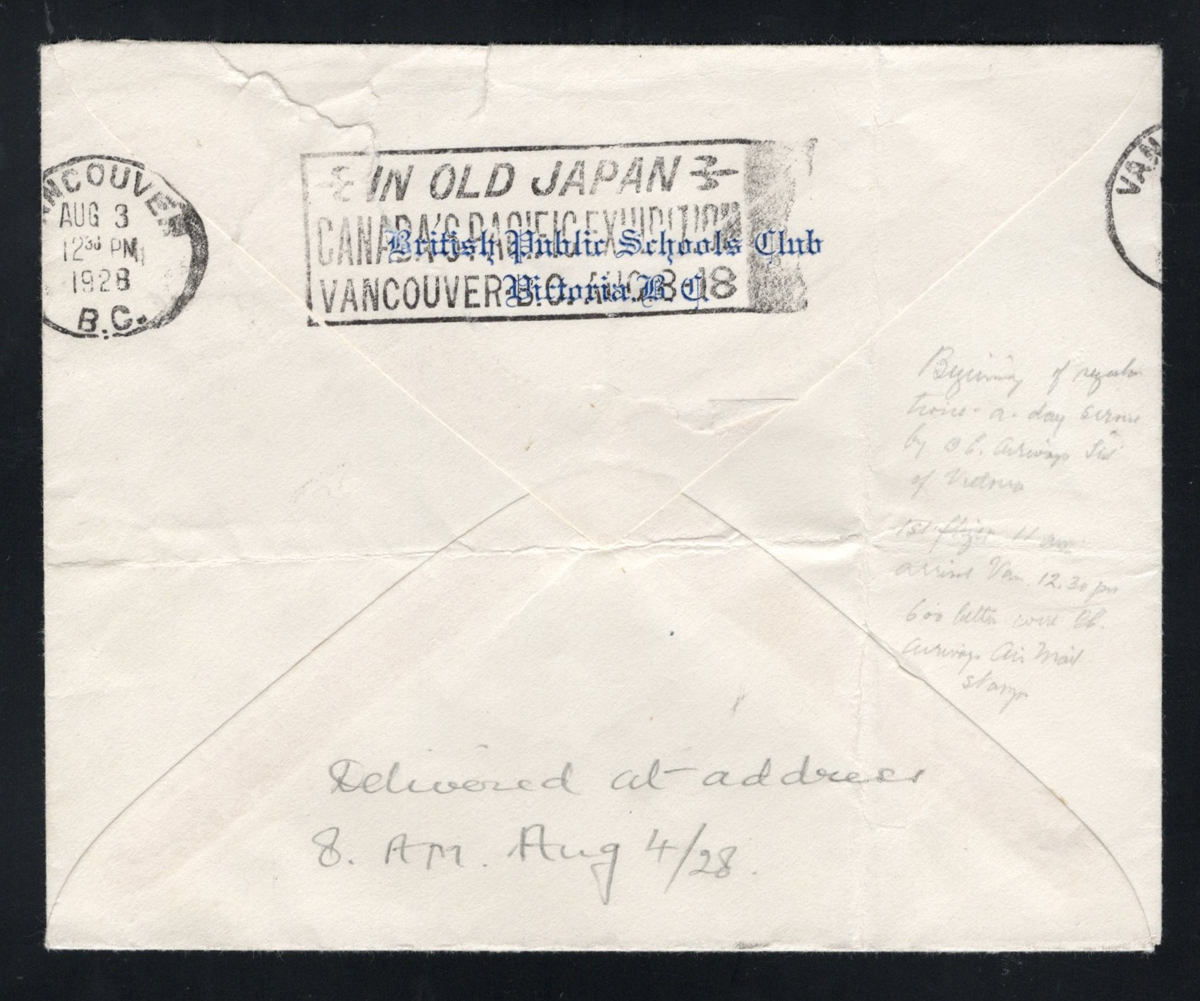 VANCOUVER
AUG 3
12 30 PM
1928
B.C.
IN OLD JAPAN
CANADA'S PACIFIC EXHIBITION
VANCOUVER B.C. AUG 8-18
British Public Schools Club
Victoria. B. C.
VAN
Beginning of regular
twice-a-day
by B C. Airways Ltd
of Victoria
1st flight 11 am
Van. 12.30 pm
600 letters BC.
Airways Air Mail
stamp
Delivered at address
8. AM. Aug 4/28.